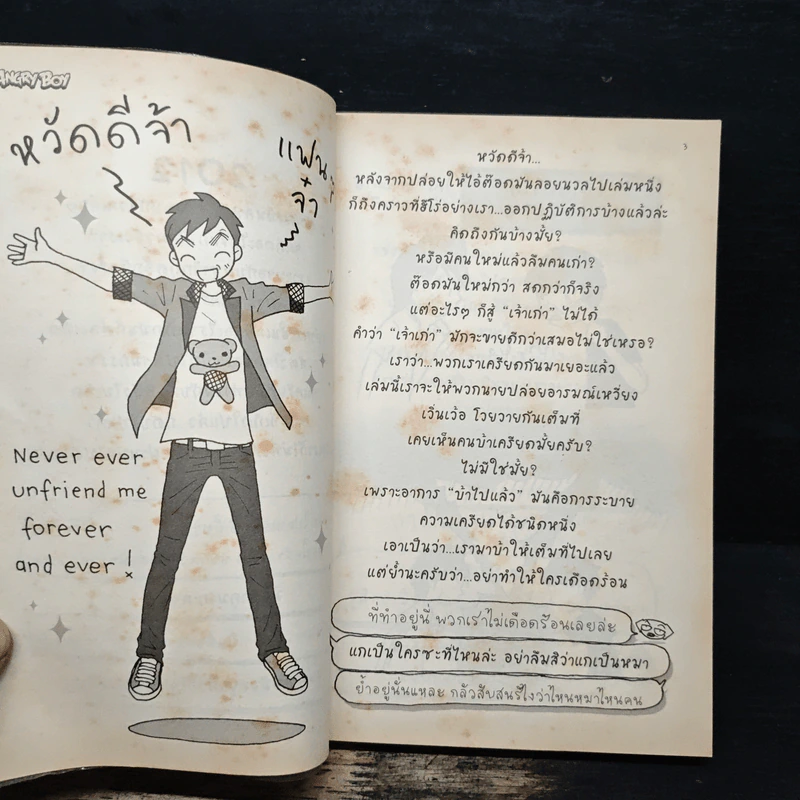 ANGRY BOY
หวัดดีจ้า
แฟน
จ๋า
Never ever
unfriend me
forever
and ever !
3
หวัดดีจ้า...
หลังจากปล่อยให้ไอ้ต๊อดมันลอยนวลไปเล่มหนึ่ง
ก็ถึงคราวที่ฮีโร่อย่างเรา...ออกปฏิบัติการบ้างแล้วล่ะ
คิดถึงกันบ้างมั้ย?
หรือมีคนใหม่แล้วลืมคนเก่า?
ต๊อดมันใหม่กว่า สดกว่าก็จริง
แต่อะไรๆ ก็สู้ "เจ้าเก่า" ไม่ได้
คำว่า "เจ้าเก่า" มักจะขายดีกว่าเสมอไม่ใช่เหรอ?
เราว่า...พวกเราเครียดกันมาเยอะแล้ว
เล่มนี้เราจะให้พวกนายปล่อยอารมณ์เหวี่ยง
เวิ่นเว้อ โวยวายกันเต็มที่
เคยเห็นคนบ้าเครียดมั้ยครับ?
ไม่มีใช่มั้ย?
เพราะอาการ "บ้าไปแล้ว" มันคือการระบาย
ความเครียดได้ชนิดหนึ่ง
เอาเป็นว่า...เรามาบ้าให้เต็มที่ไปเลย
แต่ย้ำนะครับว่า...อย่าทำให้ใครเดือดร้อน
ที่ทำอยู่นี่ พวกเราไม่เดือดร้อนเลยล่ะ
แกเป็นใครซะที่ไหนล่ะ อย่าลืมสิว่าแกเป็นหมา
ย้ำอยู่นั่นแหละ กลัวสับสนรึไงว่าไหนหมาไหนคน